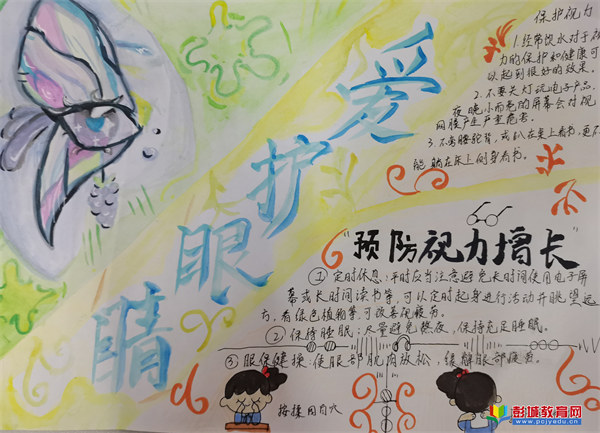 爱护眼睛
保护视力
1.经常饮水对于视
力的保护和健康可
以起到很好的效果。
2.不要关灯玩电子产品
夜晚小而亮的屏幕会对视
网膜产生严重危害。
3.不弯腰驼背,或趴在桌上看书,更不
能躺在床上侧身看书。
"预防视力增长"
①定时休息:平时应当注意避免长时间使用电子屏
幕或长时间读书等,可以定时起身进行活动并眺望远
方,看绿色植物等,可改善视疲劳。
②保持睡眠:尽量避免熬夜,保持充足睡眠。
③眼保健操:使眼部肌肉放松,缓解眼部疲劳。
按揉四白穴
彭城教育网
www.pcjyedu.cn